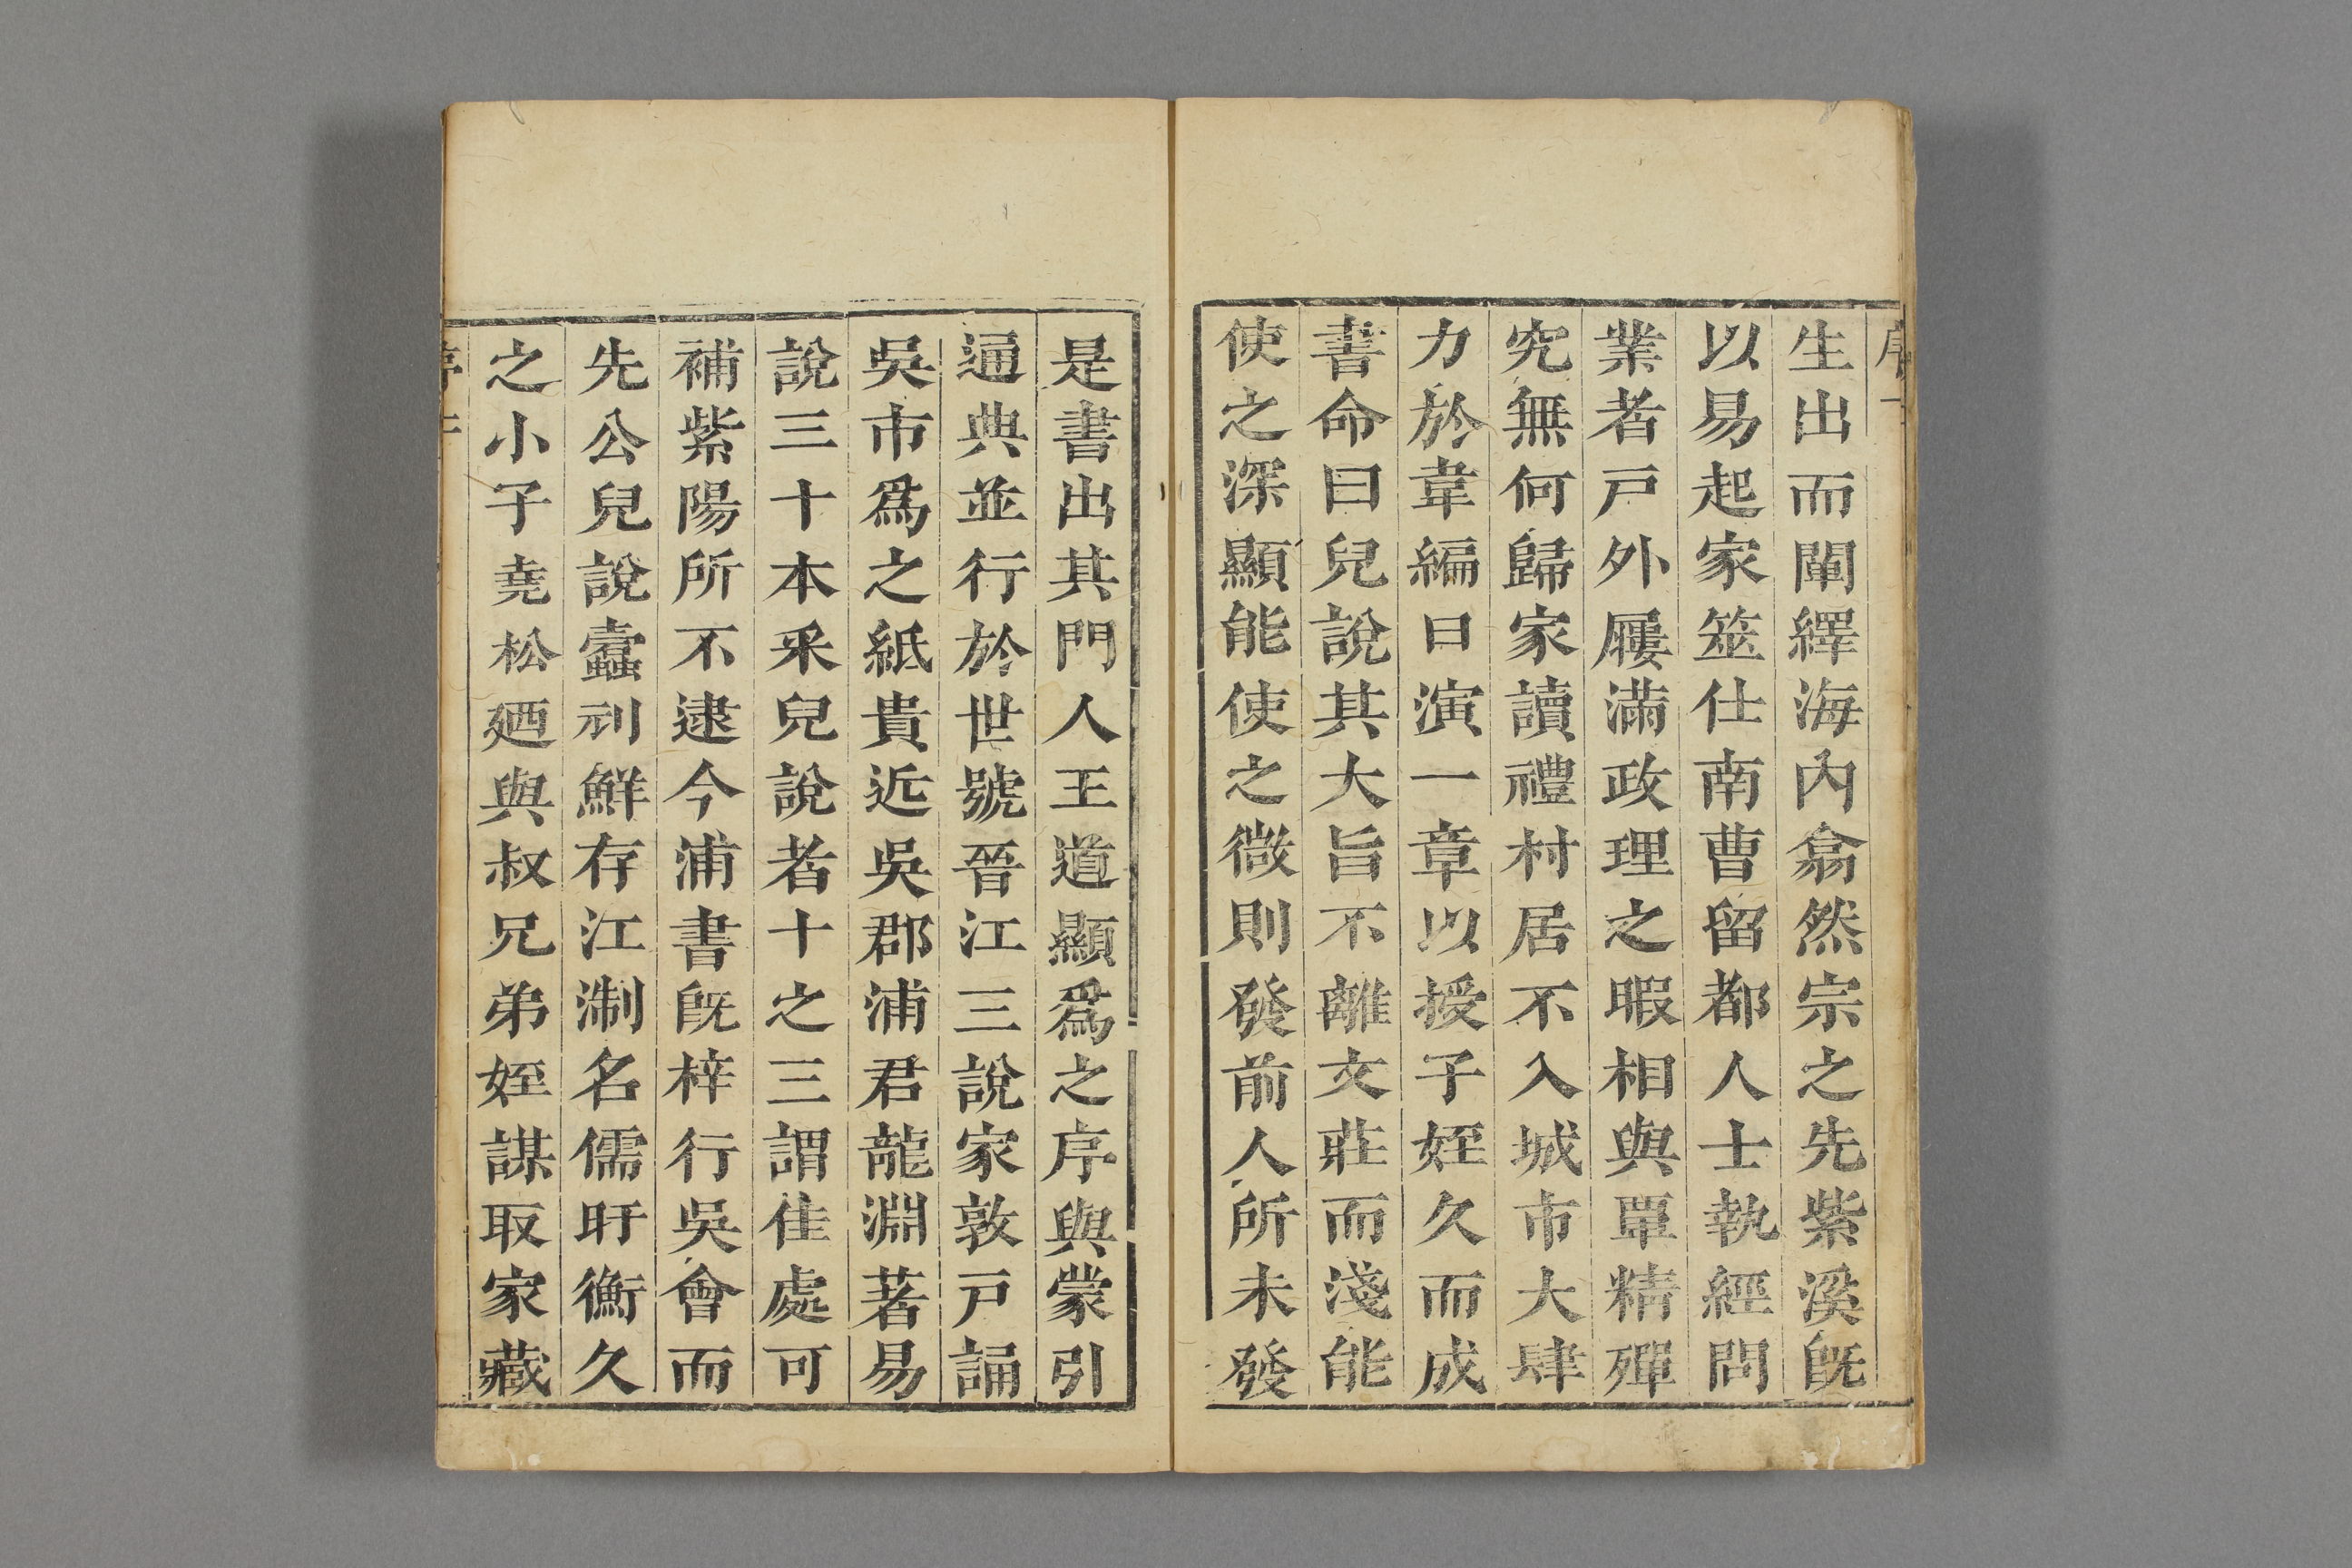 生出而闡繹海內翕然宗之先紫溪旣
以易起家筮仕南曹留都人士執經問
業者戸外屨滿政理之暇相與覃精殫
究無何歸家讀禮村居不入城市大肆
力於韋編日演一章以授子姪久而成
書命曰兒說其大旨不離文莊而淺能
使之深顯能使之微則發前人所未發
是書出其門人王道顯爲之序與蒙引
通典並行於世號晉江三說家敦戸誦
吳市爲之紙貴近吳郡浦君龍淵著易
說三十本采兒說者十之三謂佳處可
補紫陽所不逮今浦書旣梓行吳會而
先公兒說蠹刋鮮存江淛名儒盱衡久
之小子堯松廼與叔兄弟姪謀取家藏